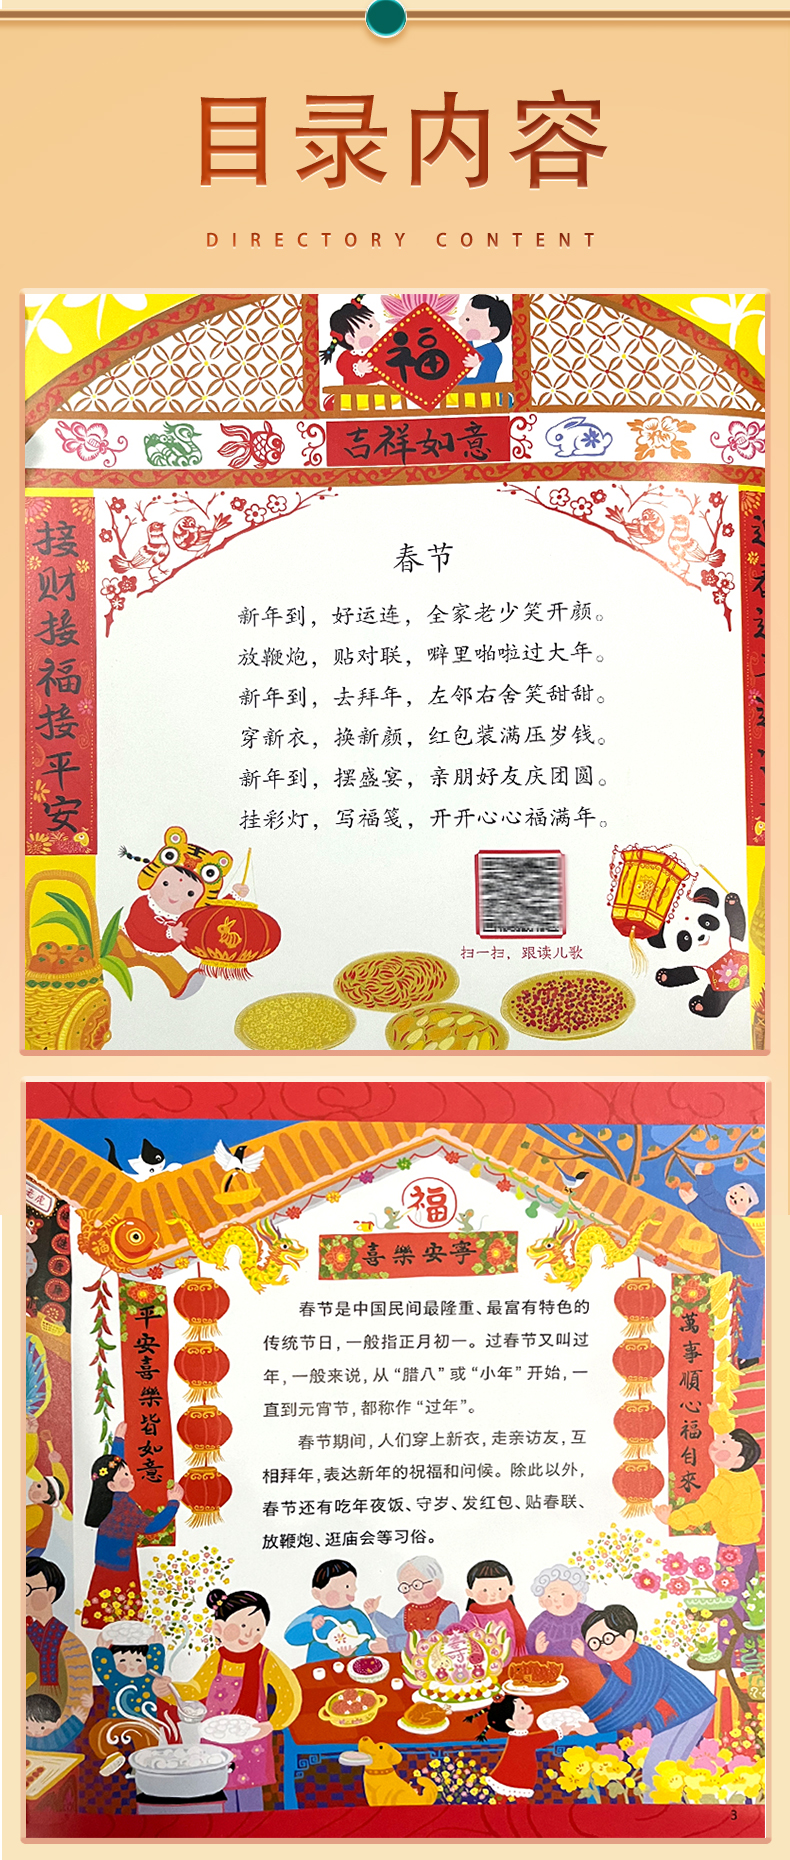 目录内容
DIRECTORY CONTENT
福
吉祥如意
接财接福接平安
春节
新年到，好运连，全家老少笑开颜。
放鞭炮，贴对联，噼里啪啦过大年。
新年到，去拜年，左邻右舍笑甜甜。
穿新衣，换新颜，红包装满压岁钱。
新年到，摆盛宴，亲朋好友庆团圆。
挂彩灯，写福笺，开开心心福满年。
扫一扫，跟读儿歌
福
喜樂安寧
平安喜樂皆如意
萬事順心福自來
春节是中国民间最隆重、最富有特色的
传统节日，一般指正月初一。过春节又叫过
年，一般来说，从“腊八”或“小年”开始，一
直到元宵节，都称作“过年”。
春节期间，人们穿上新衣，走亲访友，互
相拜年，表达新年的祝福和问候。除此以外，
春节还有吃年夜饭、守岁、发红包、贴春联、
放鞭炮、逛庙会等习俗。
3